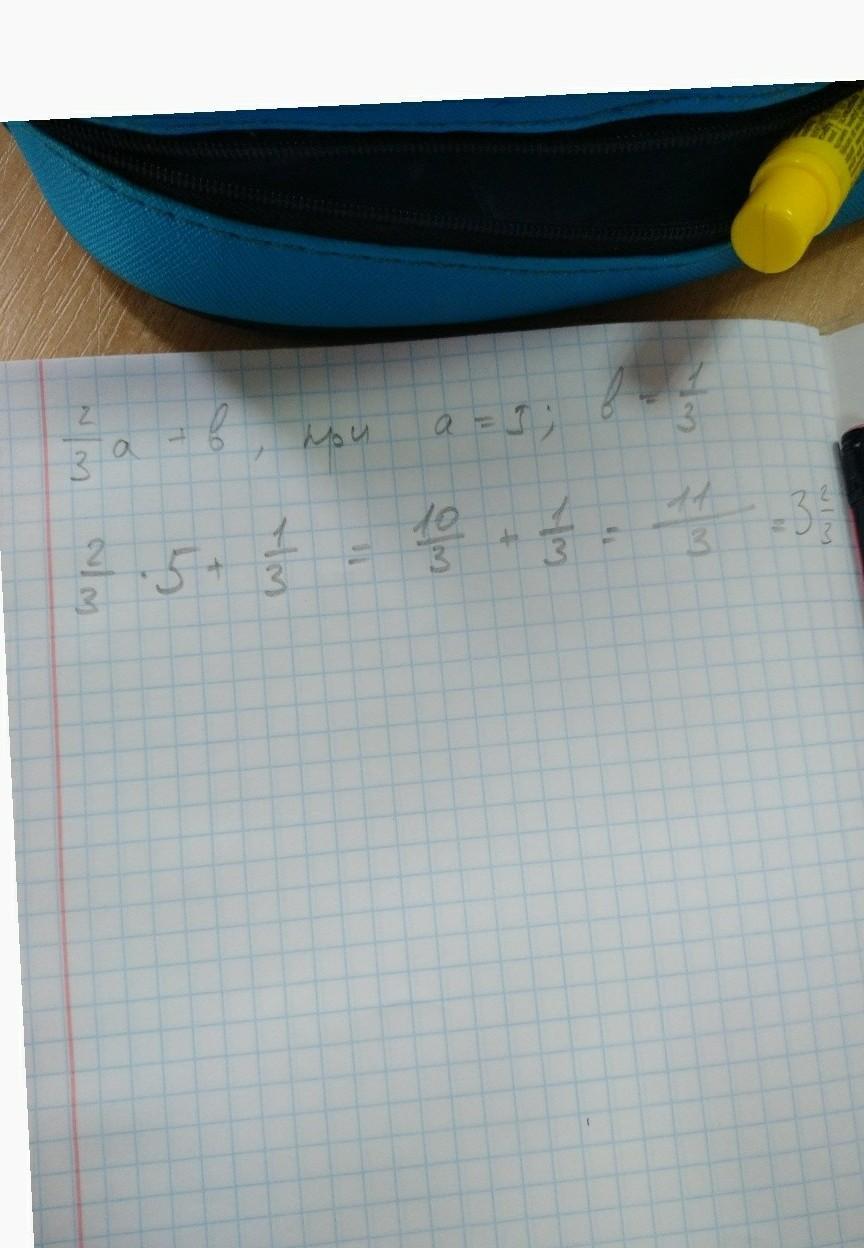 2/3 a + в, при a = 5; в = 1/3
2/3 · 5 + 1/3 = 10/3 + 1/3 = 11/3 = 3 2/3